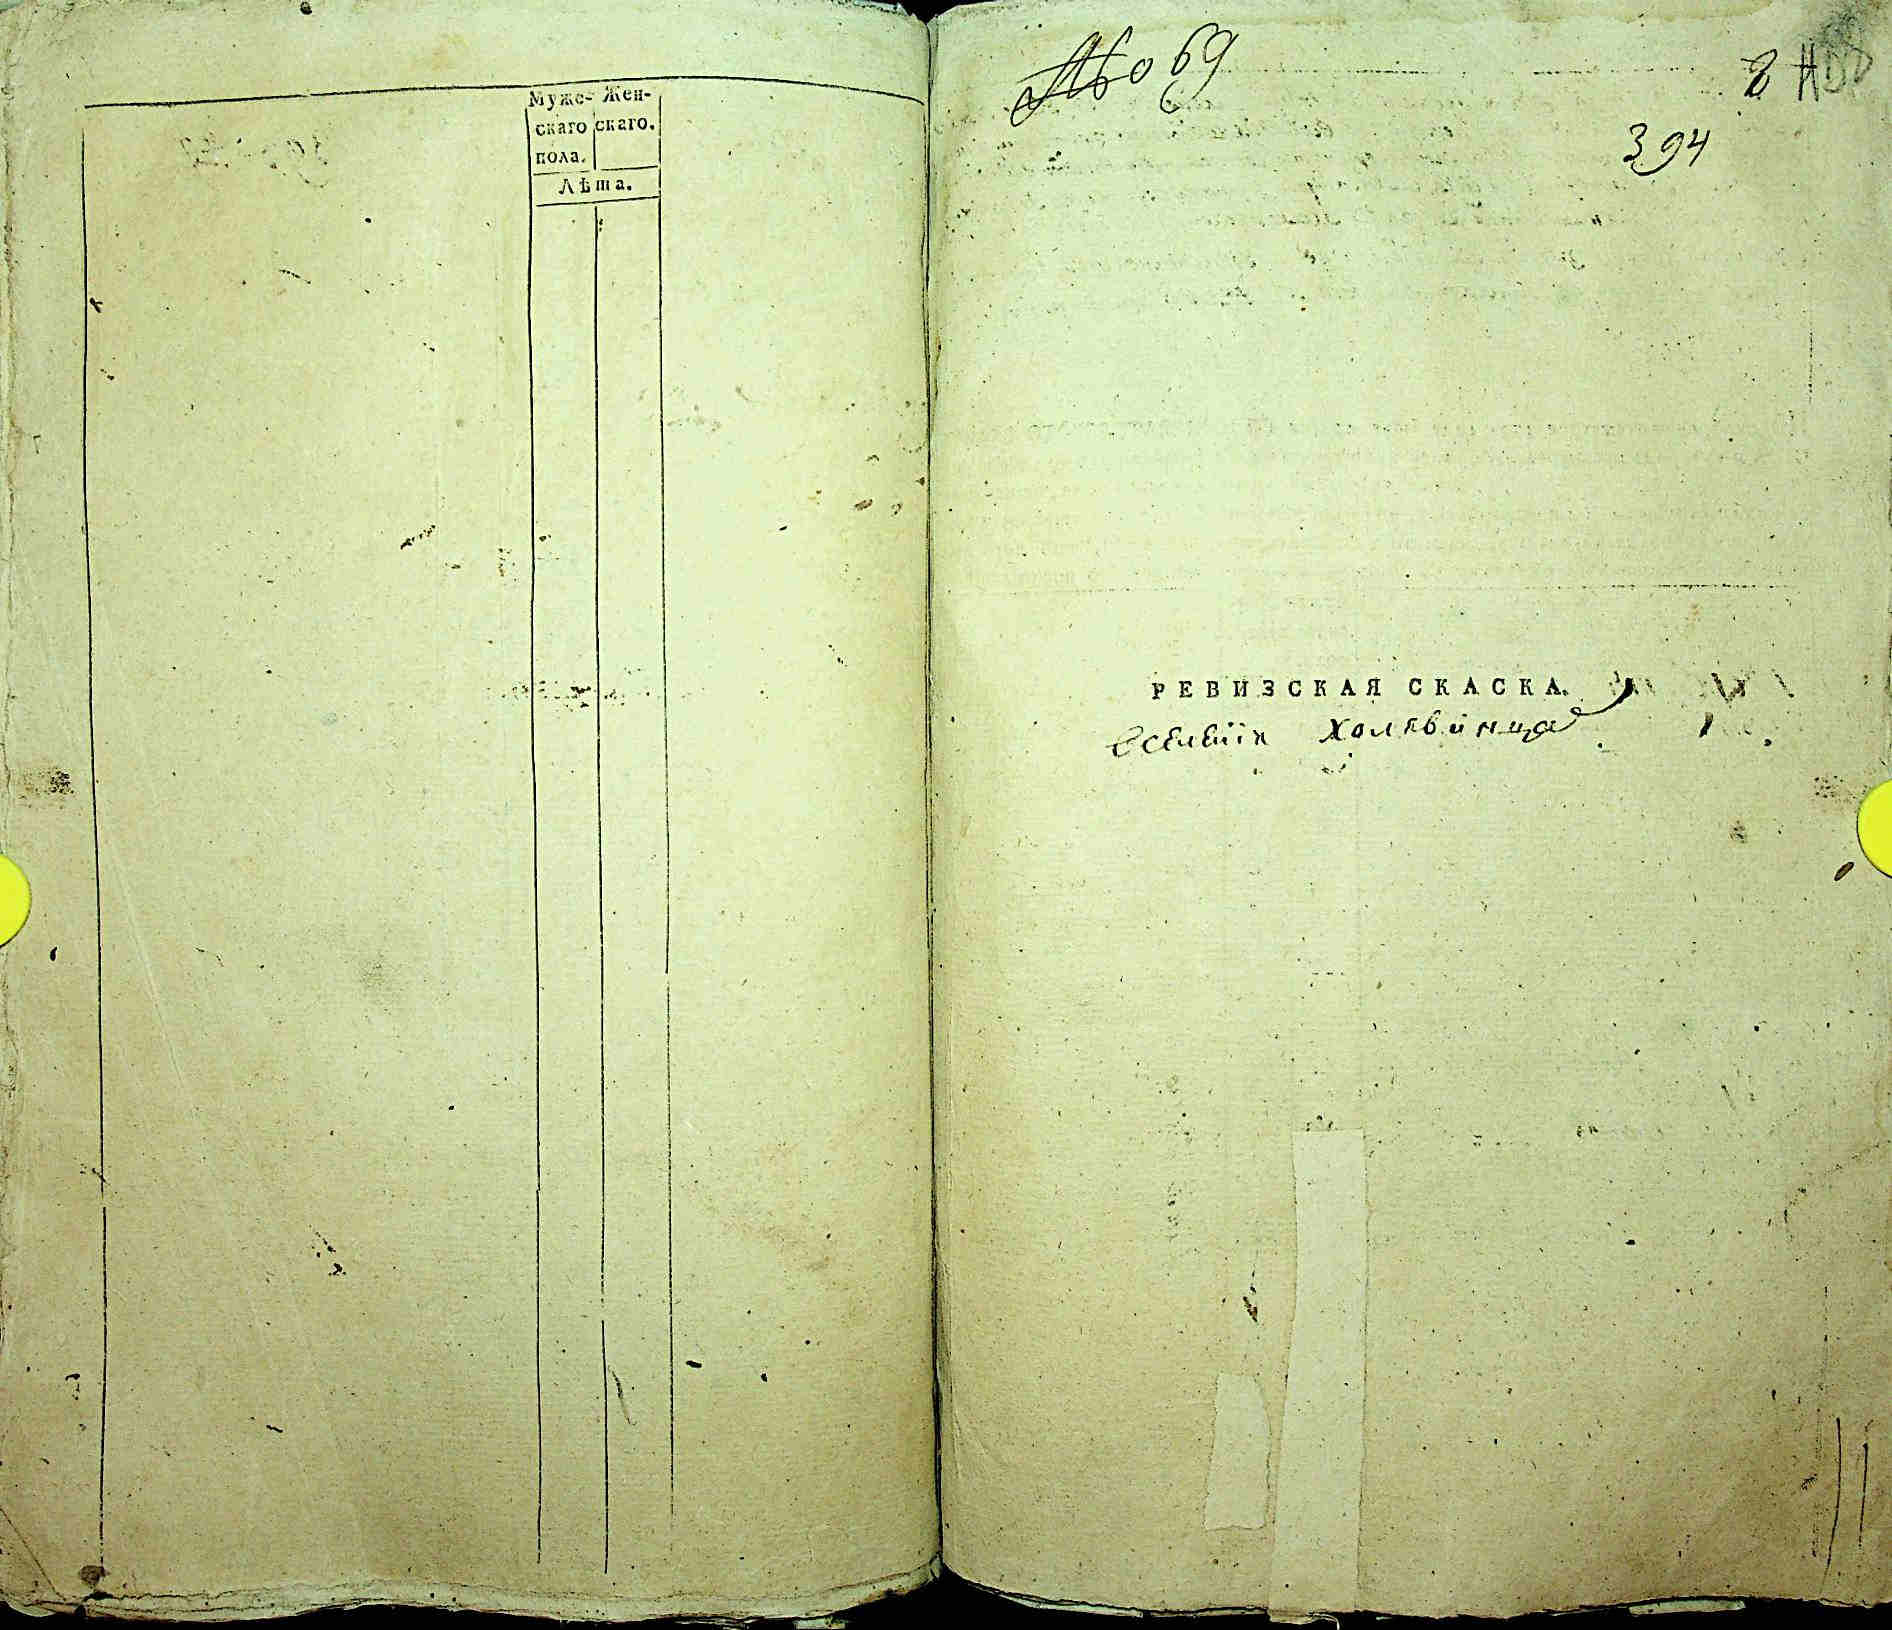 Муже- Жен-
скаго скаго.
пола.
Лѣта.
№ 69
394
РЕВИЗСКАЯ СКАСКА.
Холявинца